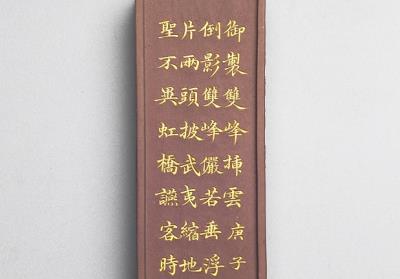 御製雙峰挿雲庚子
倒影雙峰儼若垂浮
片兩頭披武夷縮地
聖不異虹橋讌客時